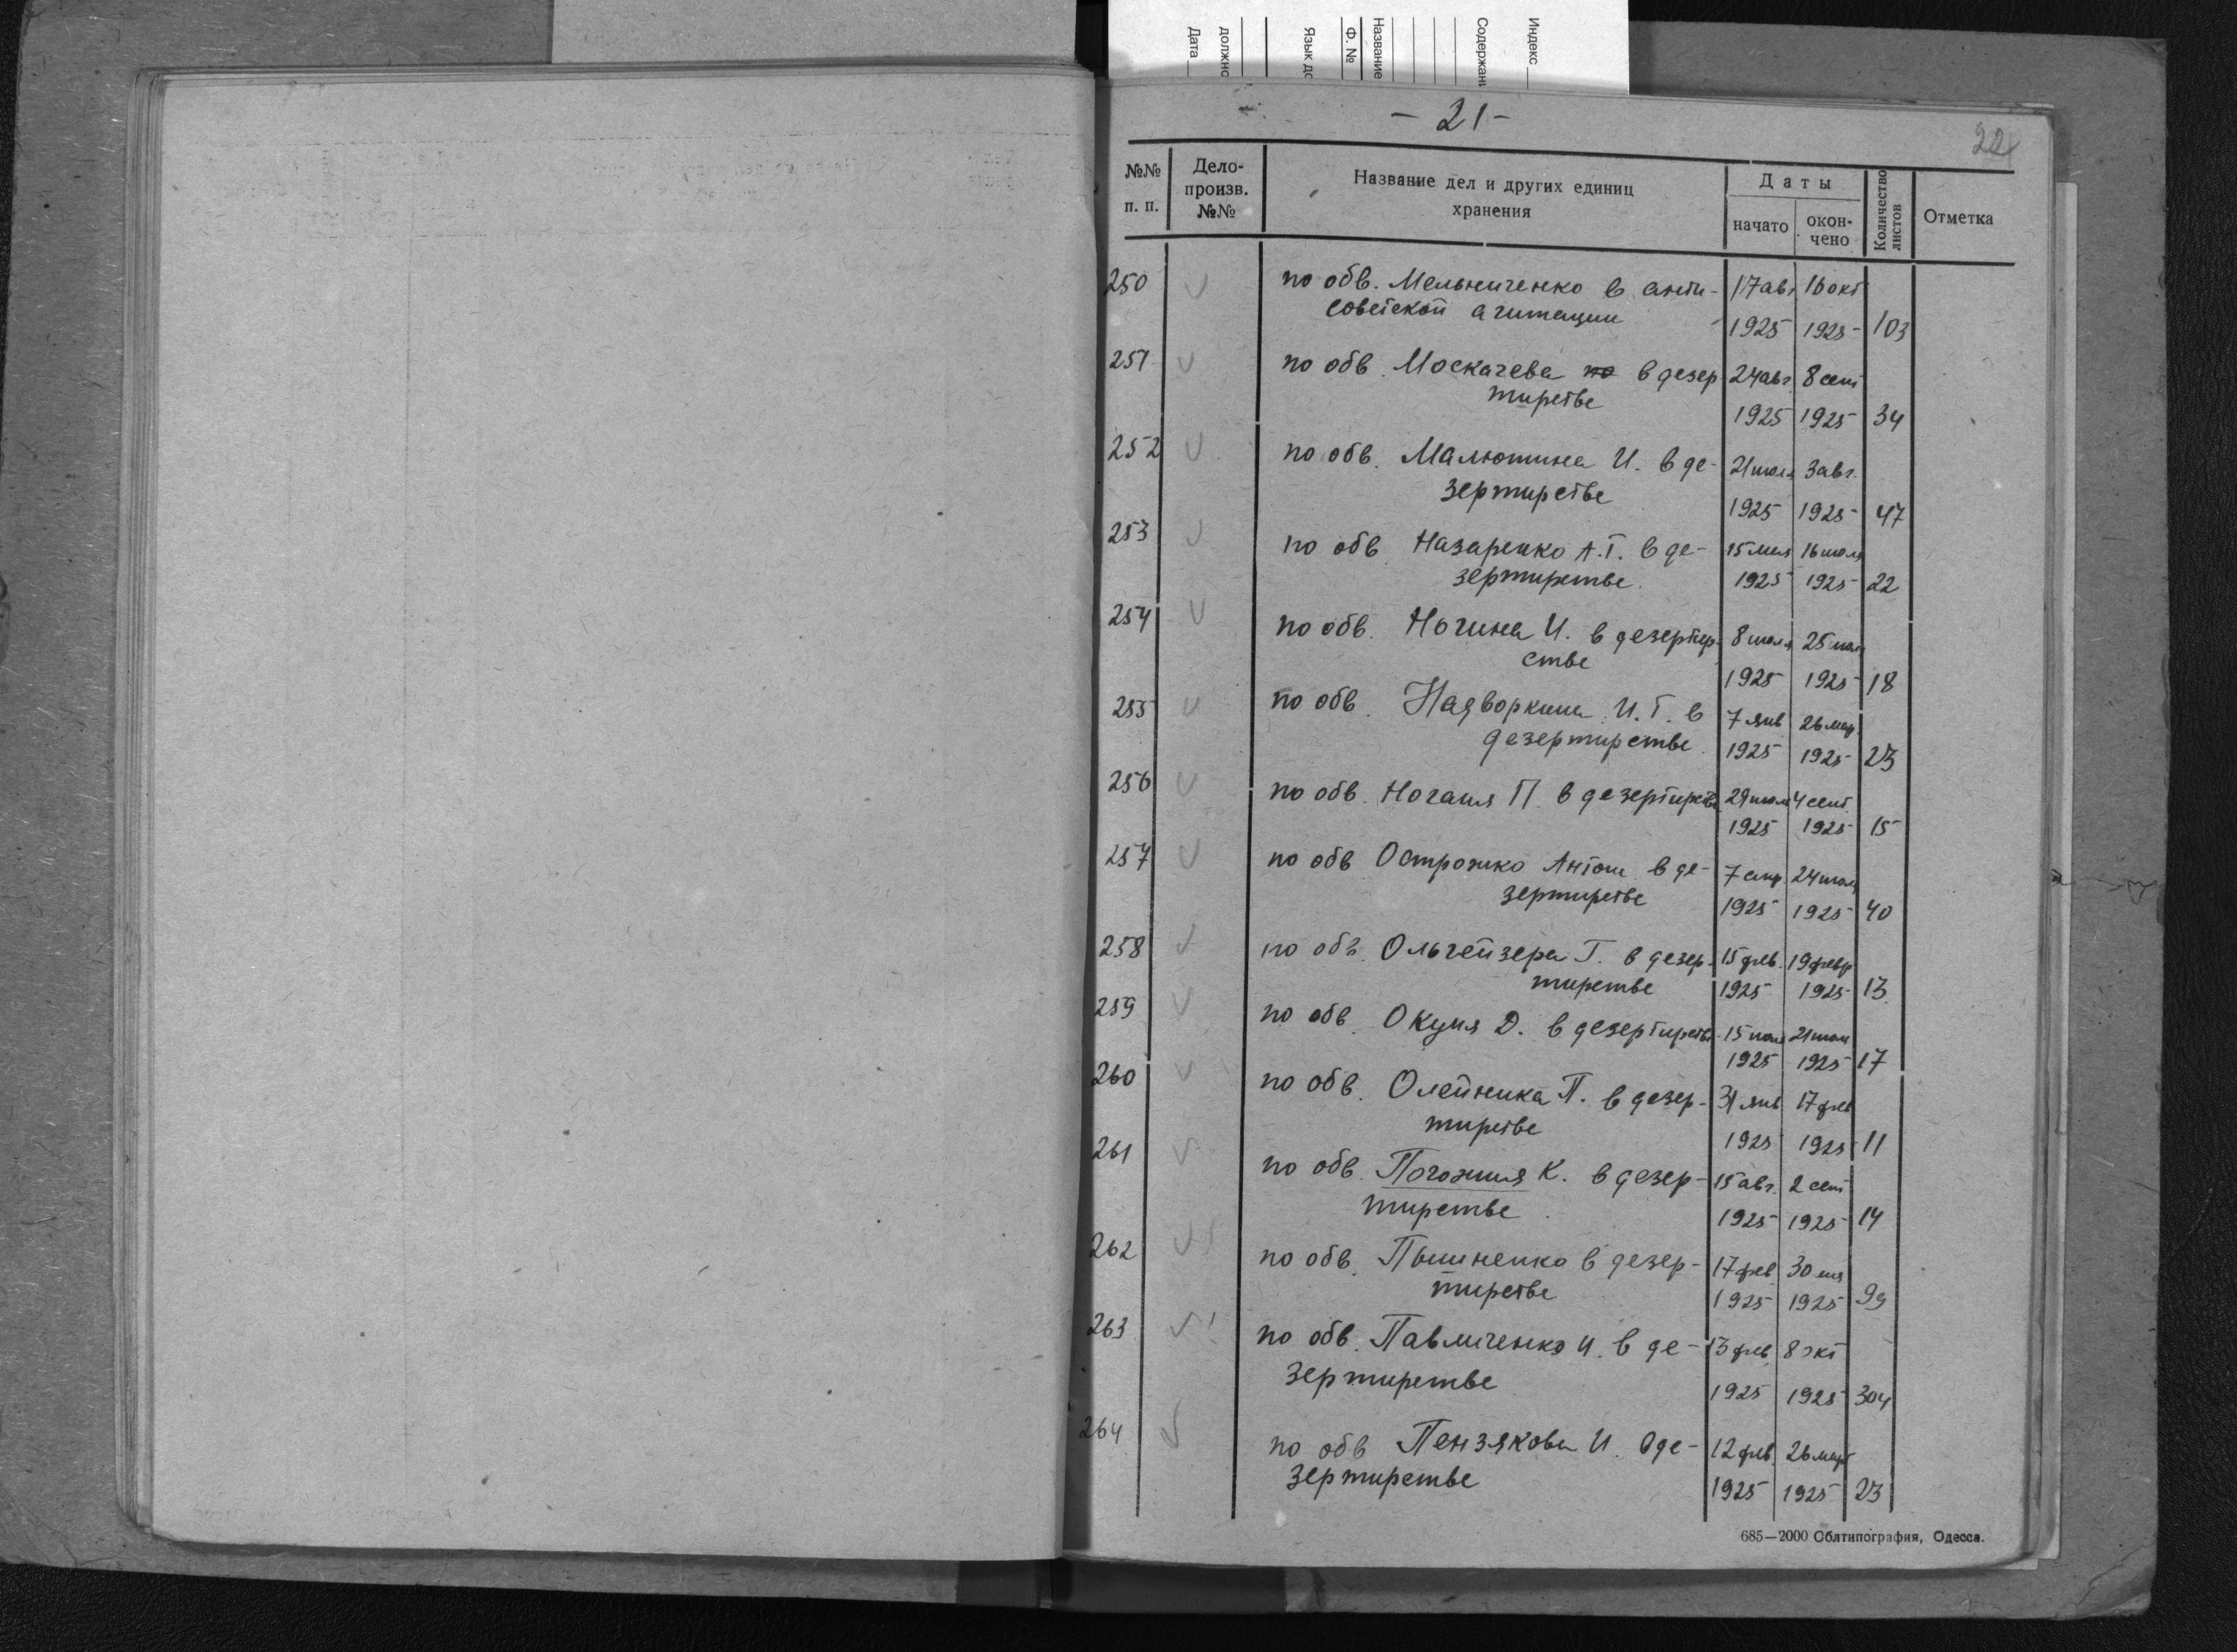 Индекс
Содержани
Название
Ф. №
Язык до
должно
Дата
- 21 -
22
№№ п. п.
Дело-произв. №№
Название дел и других единиц хранения
Даты
начато
окон-чено
Количество листов
Отметка
250 по обв. Мельниченко в анти- 17 авг 16 окт
советской агитации 1925 1925 103
251 по обв. Москачева в дезер 24 авг. 8 сент
тирстве 1925 1925 34
252 по обв. Малютина И. в де- 21 июля 3 авг.
зертирстве 1925 1925 47
253 по обв Назаренко А.Г. в де- 15 мая 16 июля
зертирстве. 1925 1925 22
254 по обв. Ногина И. в дезертир- 8 июля 25
стве 1925 1925 18
255 по обв. Надворкина И.Г. в 7 янв 26 мар
дезертирстве. 1925 1925 23
256 по обв. Ногаия П. в дезертирстве 29 4 сент
1925 1925 15
257 по обв Острожко Антон в де- 7 апр. 24
зертирстве 1925 1925 40
258 по обв. Ольгейзера Г. в дезер- 15 фев. 19 февр
тирстве 1925 1925 13
259 по обв. Окуня Д. в дезертирстве 15 21
1925 1925 17
260 по обв. Олейника П. в дезер- 31 янв 17 фев
тирстве 1925 1925 11
261 по обв. Погожия К. в дезер- 15 авг. 2 сент
тирстве. 1925 1925 14
262 по обв. Пышненко в дезер- 17 фев 30
тирстве 1925 1925 99
263 по обв. Павличенко И. в де- 13 фев 8 окт
зертирстве 1925 1925 304
264 по обв Пензякова И. в де- 12 фев. 26 мар
зертирстве 1925 1925 23
685—2000 Облтипография, Одесса.